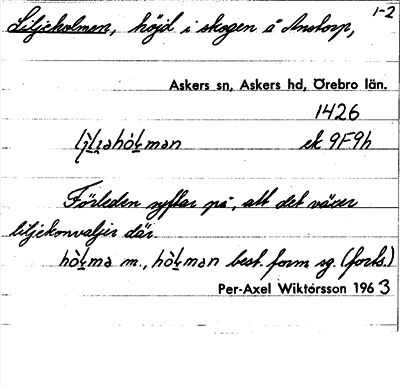 1-2
Liljeholmen, höjd i skogen å Anstorp,
Askers sn, Askers hd, Örebro län.
1426
ek 9F9h
Förleden syftar på, att det växer
liljekonvaljer där.
m., best. form sg. (forts.)
Per-Axel Wiktorsson 1963